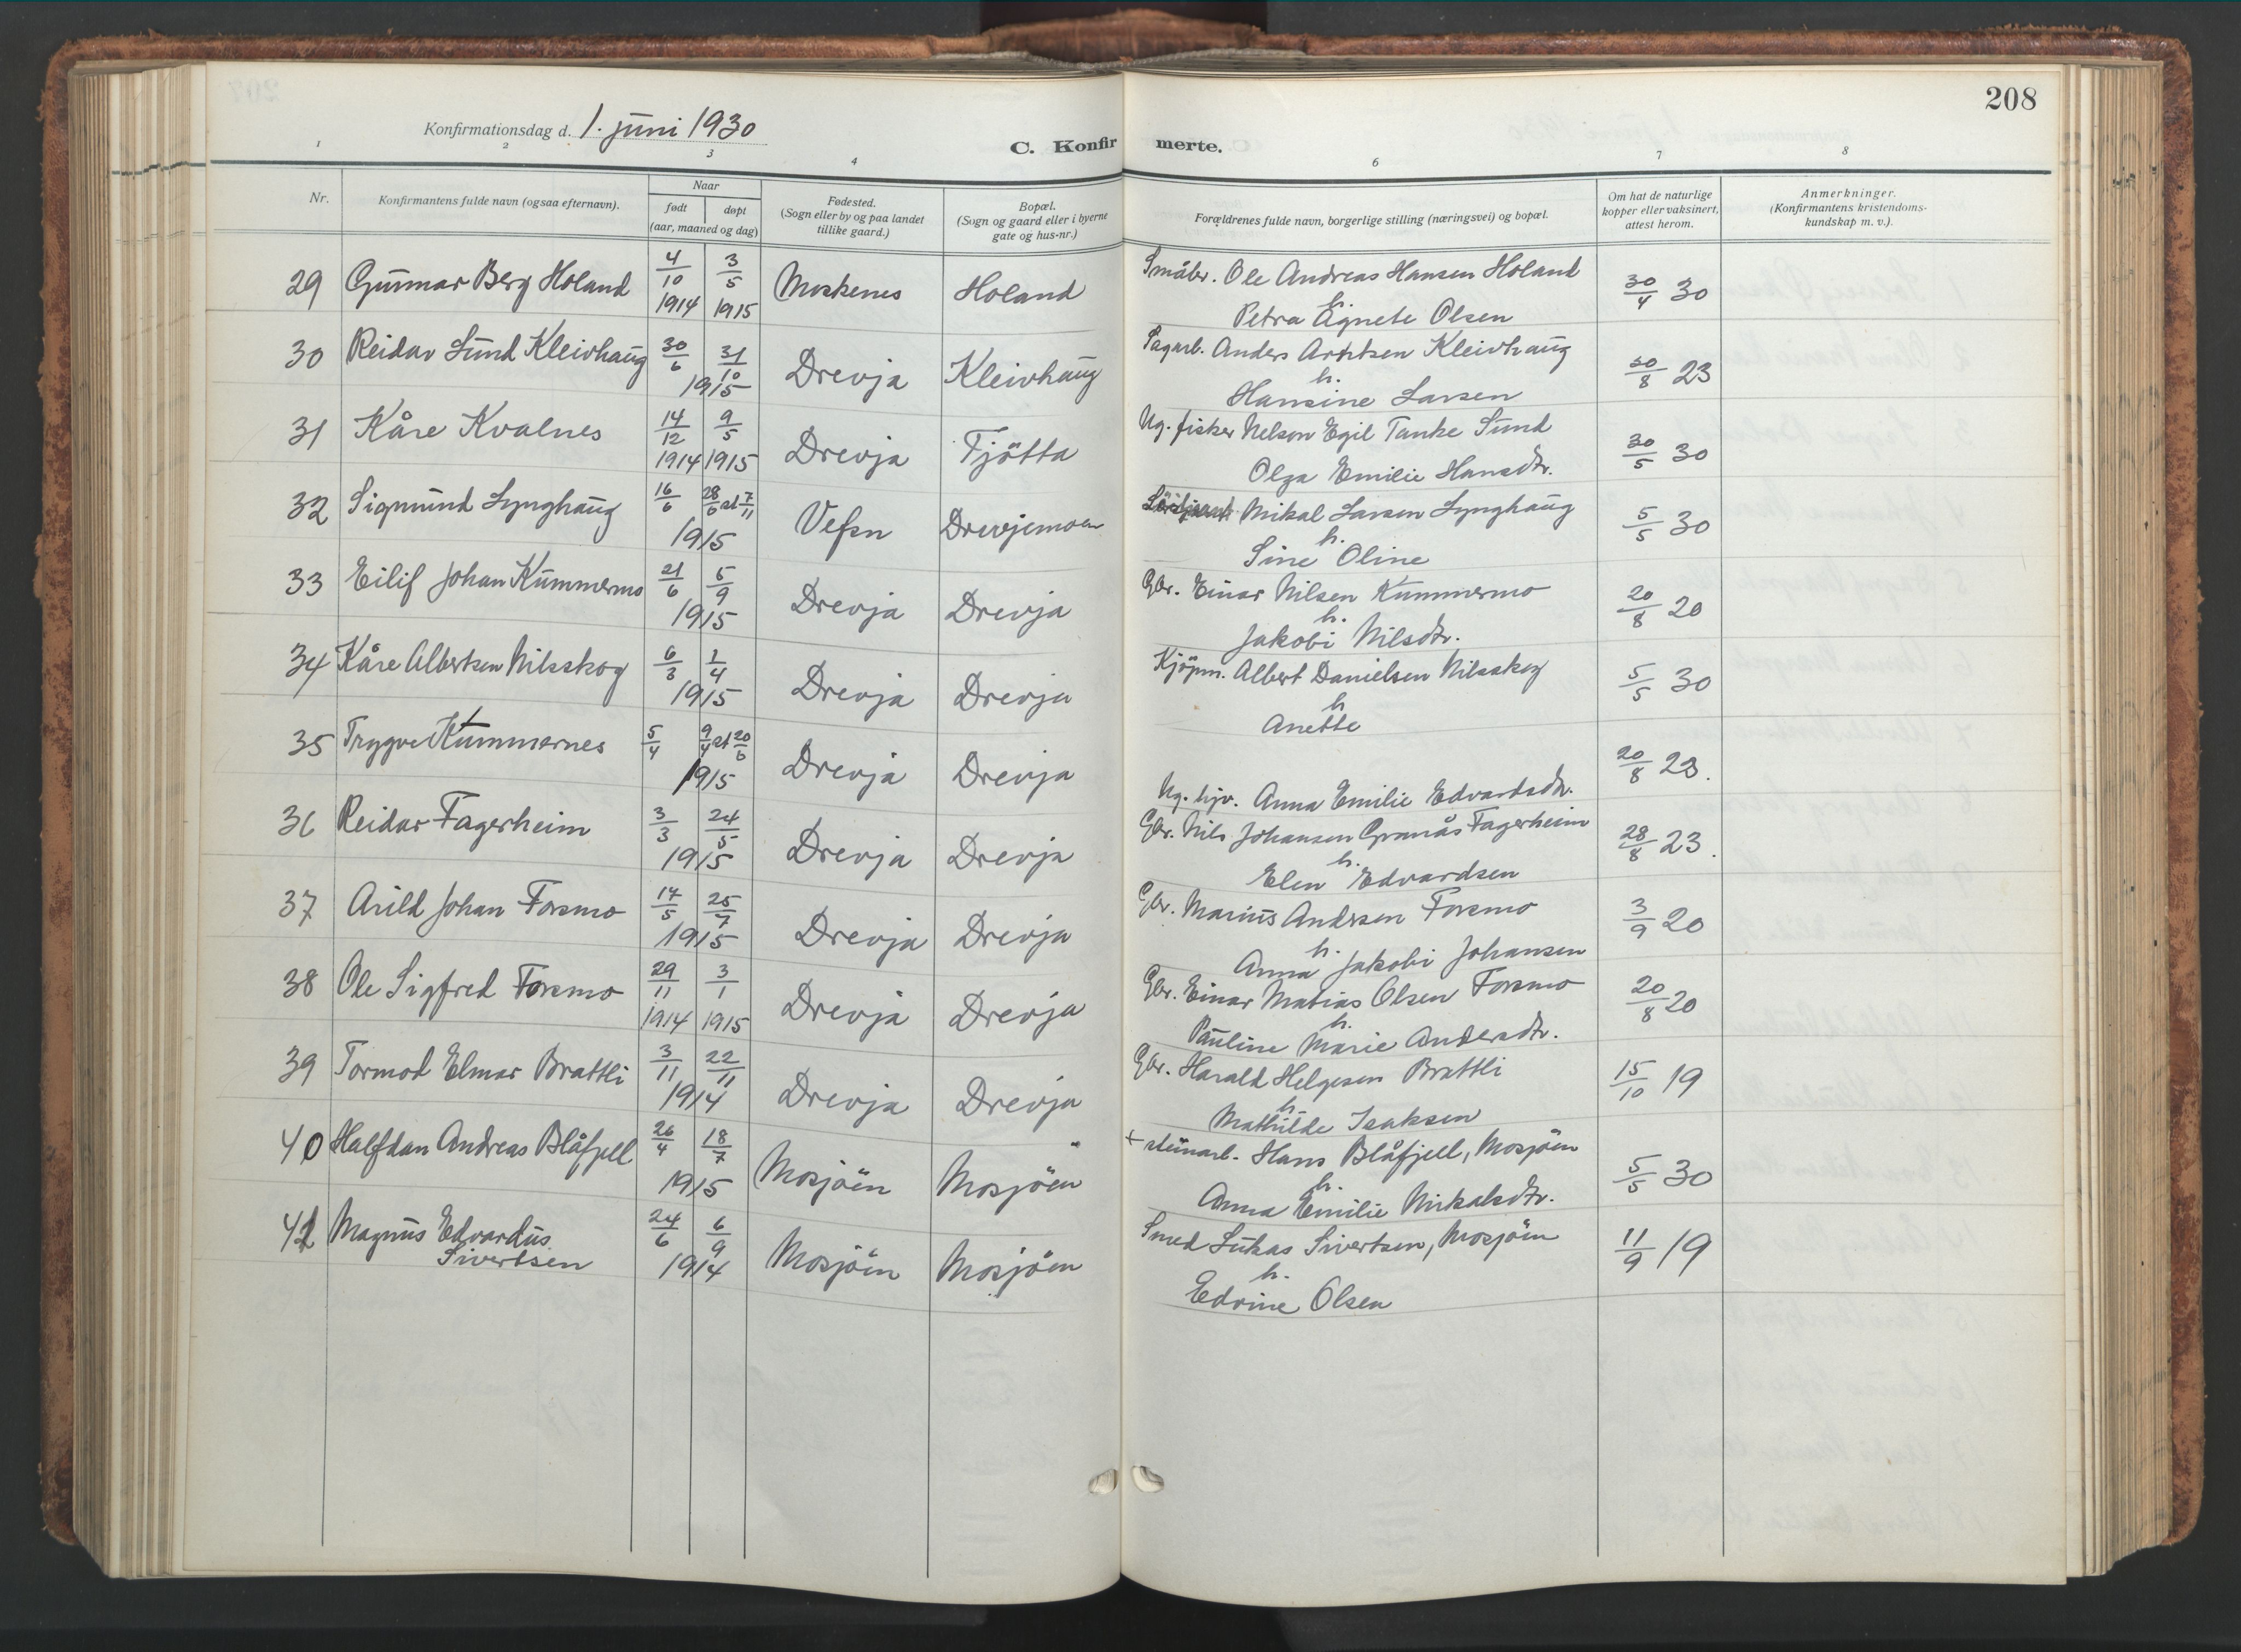 208
Konfirmationsdag d. 1. juni 1930
C. Konfirmerte.
1 2 3 4 6 7 8
Nr.
Konfirmantens fulde navn (ogsaa efternavn).
Naar
født
døpt
(aar, maaned og dag)
Fødested.
(Sogn eller by og paa landet
tillike gaard.)
Bopæl.
(Sogn og gaard eller i byerne
gate og hus-nr.)
Forældrenes fulde navn, borgerlige stilling (næringsvei) og bopæl.
Om hat de naturlige
kopper eller vaksinert,
attest herom.
Anmerkninger.
(Konfirmantens kristendoms-
kundskap m. v.).
29 Gunnar Berg Holand 4/10 1914 3/5 1915 Moskenes Holand Småbr. Ole Andreas Hansen Holand 30/4 30
h.
Petra Agnete Olsen
30 Reidar Lund Kleivhaug 30/6 31/10 1915 Drevja Kleivhaug Sagarb. Anders Arntsen Kleivhaug 30/8 23
h.
Hansine Larsen
31 Kåre Kvalnes 14/12 1914 9/5 1915 Drevja Tjötta Ug. fisker Nelson Egil Tanke Sund 30/5 30
Olga Emilie Hansdtr.
32 Sigmund Lynghaug 16/6 28/6 st 7/11 1915 Vefsn Drevjemoen Mikal Larsen Lynghaug 5/5 30
h.
Sine Oline
33 Eilif Johan Kummermo 21/6 5/9 1915 Drevja Drevja Gbr. Einar Nilsen Kummermo 20/8 20
h.
Jakobi Nilsdtr.
34 Kåre Albertsen Nilsskog 6/3 1/4 1915 Drevja Drevja Kjöpm. Albert Danielsen Nilsskog 5/5 30
h
Anette
35 Trygve Kummernes 5/4 9/4 st 20/6 1915 Drevja Drevja 20/8 23.
Ug. hjv. Anna Emilie Edvardsdtr.
36 Reidar Fagerheim 3/3 24/5 1915 Drevja Drevja Gbr. Nils Johansen Granås Fagerheim 28/8 23.
h.
Elen Edvardsen
37 Arild Johan Forsmo 14/5 25/7 1915 Drevja Drevja Gbr. Marius Andrsen Forsmo 3/9 20
h.
Anna Jakobi Johansen
38 Ole Sigfred Forsmo 29/11 1914 3/1 1915 Drevja Drevja Gbr. Einar Matias Olsen Forsmo 20/8 20
h.
Pauline Marie Andersdtr.
39 Tormod Elmar Brattli 3/11 22/11 1914 Drevja Drevja Gbr. Harald Helgesen Brattli 15/10 19
h.
Mathilde Isaksen
40 Halfdan Andreas Blåfjell 26/4 18/7 1915 Mosjöen Mosjöen + steinarb. Hans Blåfjell, Mosjöen 5/5 30
h.
Anna Emilie Mikalsdtr.
41 Magnus Edvardus 24/6 6/9 1914 Mosjöen Mosjöen Smed Lukas Sivertsen, Mosjöen 11/9 19
Sivertsen
h.
Edvine Olsen